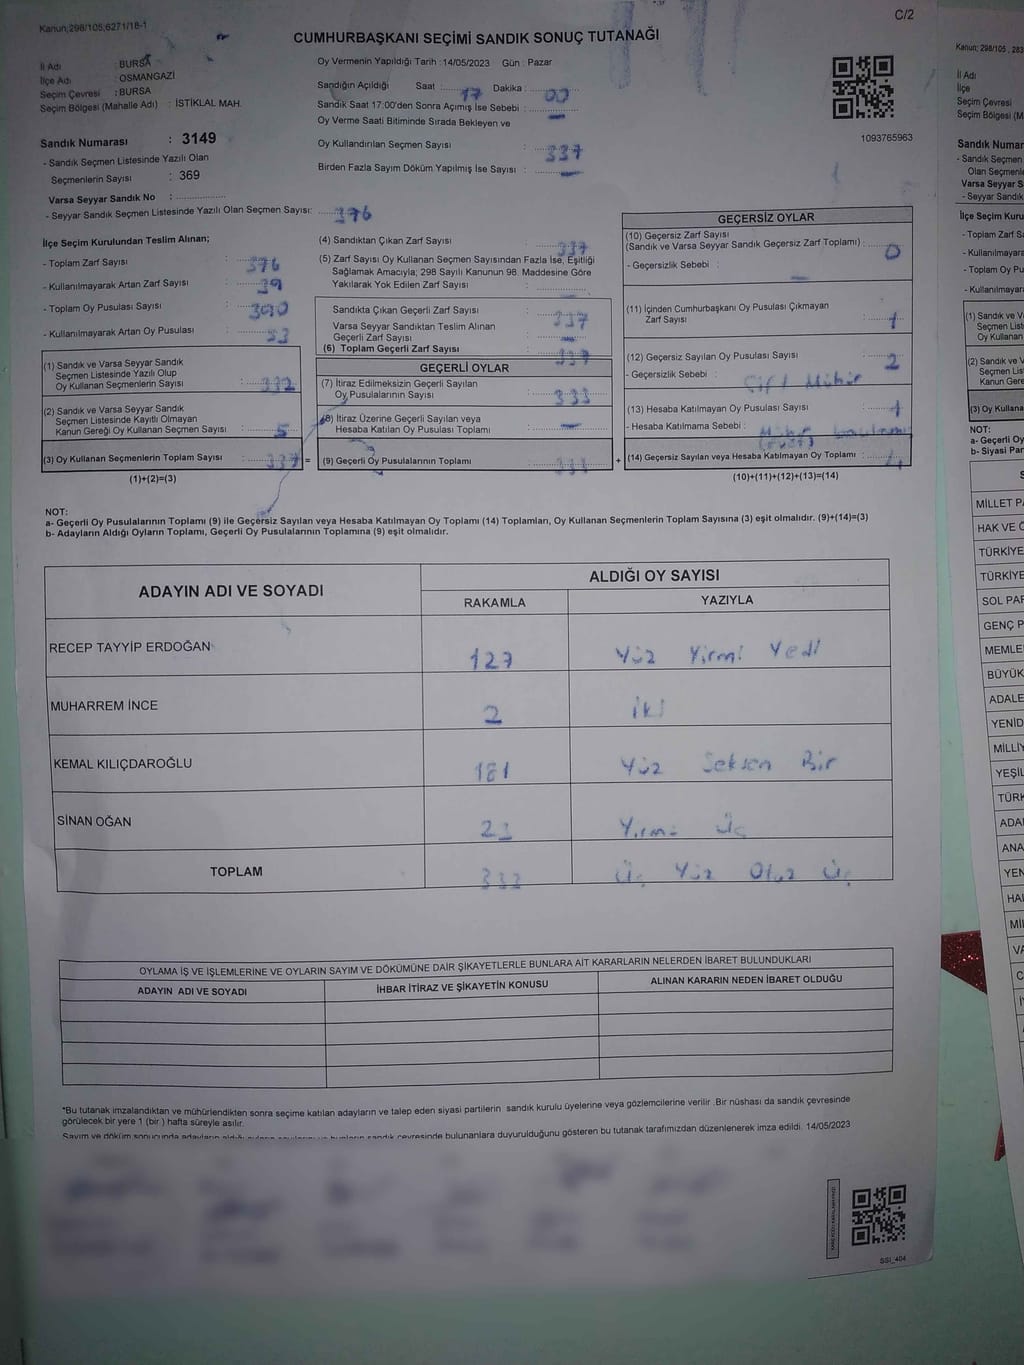 C/2
Kanun; 298/105,6271/18-1
CUMHURBAŞKANI SEÇİMİ SANDIK SONUÇ TUTANAĞI
İl Adı : BURSA
İlçe Adı : OSMANGAZİ
Seçim Çevresi : BURSA
Seçim Bölgesi (Mahalle Adı) : İSTİKLAL MAH.
Oy Vermenin Yapıldığı Tarih :14/05/2023 Gün : Pazar
Sandığın Açıldığı Saat : 17 Dakika : 00
Sandık Saat 17:00'den Sonra Açımış İse Sebebi :
Oy Verme Saati Bitiminde Sırada Bekleyen ve
Oy Kullandırılan Seçmen Sayısı : 337
Birden Fazla Sayım Döküm Yapılmış İse Sayısı : —
1093765963
Sandık Numarası : 3149
- Sandık Seçmen Listesinde Yazılı Olan
Seçmenlerin Sayısı : 369
Varsa Seyyar Sandık No :
- Seyyar Sandık Seçmen Listesinde Yazılı Olan Seçmen Sayısı: 376
İlçe Seçim Kurulundan Teslim Alınan;
- Toplam Zarf Sayısı : 376
- Kullanılmayarak Artan Zarf Sayısı : 39
- Toplam Oy Pusulası Sayısı : 390
- Kullanılmayarak Artan Oy Pusulası : 53
(1) Sandık ve Varsa Seyyar Sandık
Seçmen Listesinde Yazılı Olup
Oy Kullanan Seçmenlerin Sayısı : 332
(2) Sandık ve Varsa Seyyar Sandık
Seçmen Listesinde Kayıtlı Olmayan
Kanun Gereği Oy Kullanan Seçmen Sayısı : 5
(3) Oy Kullanan Seçmenlerin Toplam Sayısı : 337 =
(1)+(2)=(3)
(4) Sandıktan Çıkan Zarf Sayısı : 337
(5) Zarf Sayısı Oy Kullanan Seçmen Sayısından Fazla İse, Eşitliği
Sağlamak Amacıyla; 298 Sayılı Kanunun 98. Maddesine Göre
Yakılarak Yok Edilen Zarf Sayısı : —
Sandıkta Çıkan Geçerli Zarf Sayısı : 337
Varsa Seyyar Sandıktan Teslim Alınan
Geçerli Zarf Sayısı : —
(6) Toplam Geçerli Zarf Sayısı : 337
GEÇERLİ OYLAR
(7) İtiraz Edilmeksizin Geçerli Sayılan
Oy Pusulalarının Sayısı : 333
(8) İtiraz Üzerine Geçerli Sayılan veya
Hesaba Katılan Oy Pusulası Toplamı : —
(9) Geçerli Oy Pusulalarının Toplamı : 333 +
GEÇERSİZ OYLAR
(10) Geçersiz Zarf Sayısı
(Sandık ve Varsa Seyyar Sandık Geçersiz Zarf Toplamı) : 0
- Geçersizlik Sebebi : —
(11) İçinden Cumhurbaşkanı Oy Pusulası Çıkmayan
Zarf Sayısı : 1
(12) Geçersiz Sayılan Oy Pusulası Sayısı : 2
- Geçersizlik Sebebi : Çift Mühür
(13) Hesaba Katılmayan Oy Pusulası Sayısı : 1
- Hesaba Katılmama Sebebi : Mühür
(14) Geçersiz Sayılan veya Hesaba Katılmayan Oy Toplamı : 4
(10)+(11)+(12)+(13)=(14)
NOT:
a- Geçerli Oy Pusulalarının Toplamı (9) ile Geçersiz Sayılan veya Hesaba Katılmayan Oy Toplamı (14) Toplamları, Oy Kullanan Seçmenlerin Toplam Sayısına (3) eşit olmalıdır. (9)+(14)=(3)
b- Adayların Aldığı Oyların Toplamı, Geçerli Oy Pusulalarının Toplamına (9) eşit olmalıdır.
ADAYIN ADI VE SOYADI
ALDIĞI OY SAYISI
RAKAMLA YAZIYLA
RECEP TAYYİP ERDOĞAN 127 Yüz Yirmi Yedi
MUHARREM İNCE 2 iki
KEMAL KILIÇDAROĞLU 181 Yüz Seksen Bir
SİNAN OĞAN 23 Yirmi Üç
TOPLAM 333 Üç Yüz Otuz Üç
OYLAMA İŞ VE İŞLEMLERİNE VE OYLARIN SAYIM VE DÖKÜMÜNE DAİR ŞİKAYETLERLE BUNLARA AİT KARARLARIN NELERDEN İBARET BULUNDUKLARI
ADAYIN ADI VE SOYADI İHBAR İTİRAZ VE ŞİKAYETİN KONUSU ALINAN KARARIN NEDEN İBARET OLDUĞU
*Bu tutanak imzalandıktan ve mühürlendikten sonra seçime katılan adayların ve talep eden siyasi partilerin sandık kurulu üyelerine veya gözlemcilerine verilir .Bir nüshası da sandık çevresinde
görülecek bir yere 1 (bir ) hafta süreyle asılır.
Sayım ve döküm sonucunda adayların aldığı sandık çevresinde bulunanlara duyurulduğunu gösteren bu tutanak tarafımızdan düzenlenerek imza edildi. 14/05/2023
SSI_404
Kanun; 298/105 , 283
İl Adı
İlçe
Seçim Çevresi
Seçim Bölgesi (M
Sandık Numar
- Sandık Seçmen
Olan Seçmenle
Varsa Seyyar S
- Seyyar Sandık
İlçe Seçim Kuru
- Toplam Zarf Sa
- Kullanılmayara
- Toplam Oy Pus
- Kullanılmayara
(1) Sandık ve V
Seçmen List
Oy Kullanan
(2) Sandık ve V
Seçmen List
Kanun Gere
(3) Oy Kullana
NOT:
a- Geçerli Oy
b- Siyasi Par
MİLLET P
HAK VE Ö
TÜRKİYE
TÜRKİYE
SOL PAR
GENÇ P
MEMLE
BÜYÜK
ADALE
YENİD
MİLLİY
YEŞİL
TÜRK
ADA
ANA
YEN
HA
Mİ
VA
C